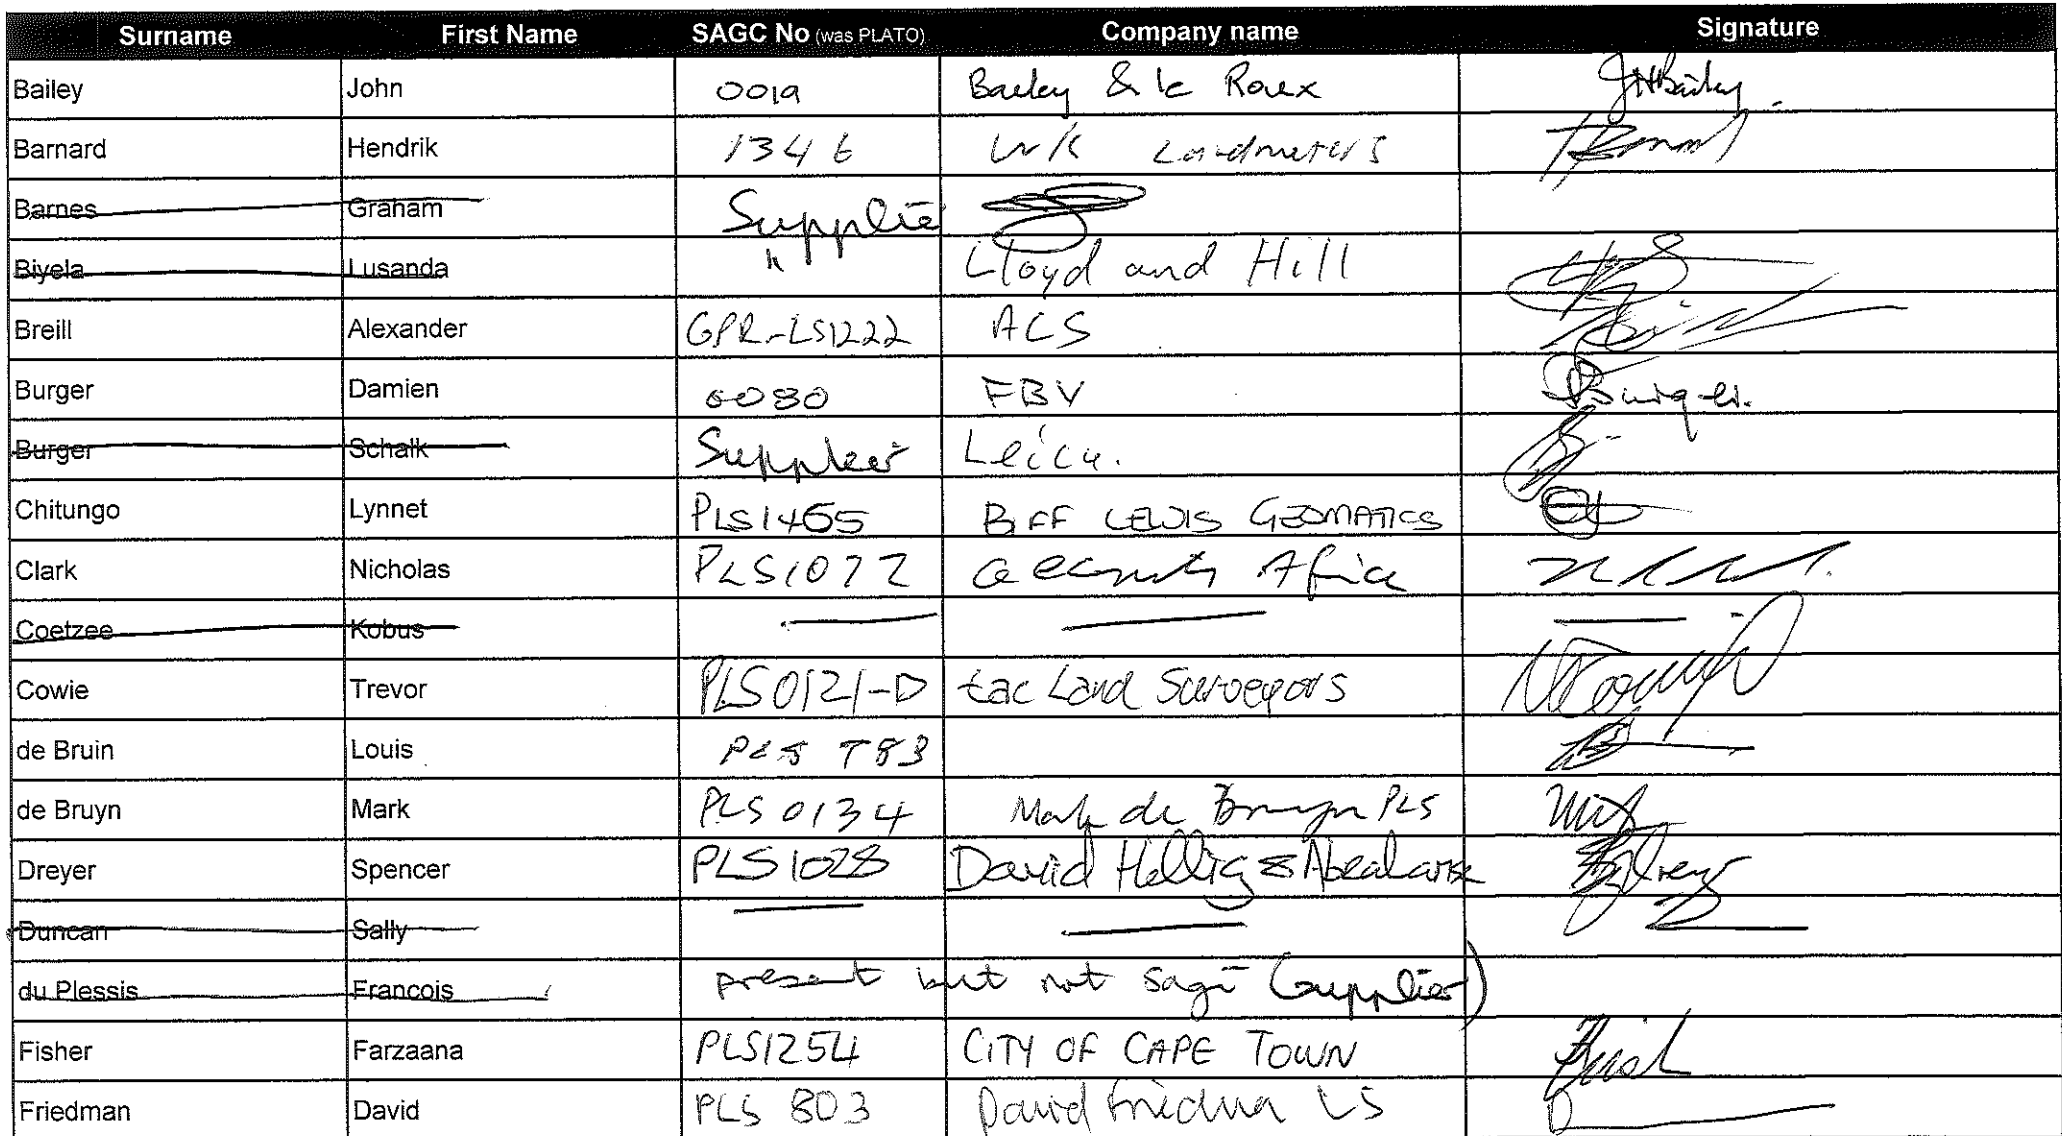 Surname First Name SAGC No (was PLATO) Company name Signature
Bailey John 0019 Bailey & le Roux JHBailey.
Barnard Hendrik 1346 W/K Landmeters
Barnes Graham Supplier
Biyela Lusanda " Lloyd and Hill
Breill Alexander GPR-LS1222 ACS
Burger Damien 0080 FBV Burger.
Burger Schalk Supplier Leica.
Chitungo Lynnet PLS1465 BIFF LEWIS GEOMATICS
Clark Nicholas PLS1077 Africa
Coetzee Kobus
Cowie Trevor PLS0121-D tac Land Surveyors
de Bruin Louis PLS 783
de Bruyn Mark PLS 0134 Mark de Bruyn PLS
Dreyer Spencer PLS1028 David Hellig & Abrahamse
Duncan Sally
du Plessis Francois present but not sagi (supplier)
Fisher Farzaana PLS1254 CITY OF CAPE TOWN
Friedman David PLS 803 David Friedman LS